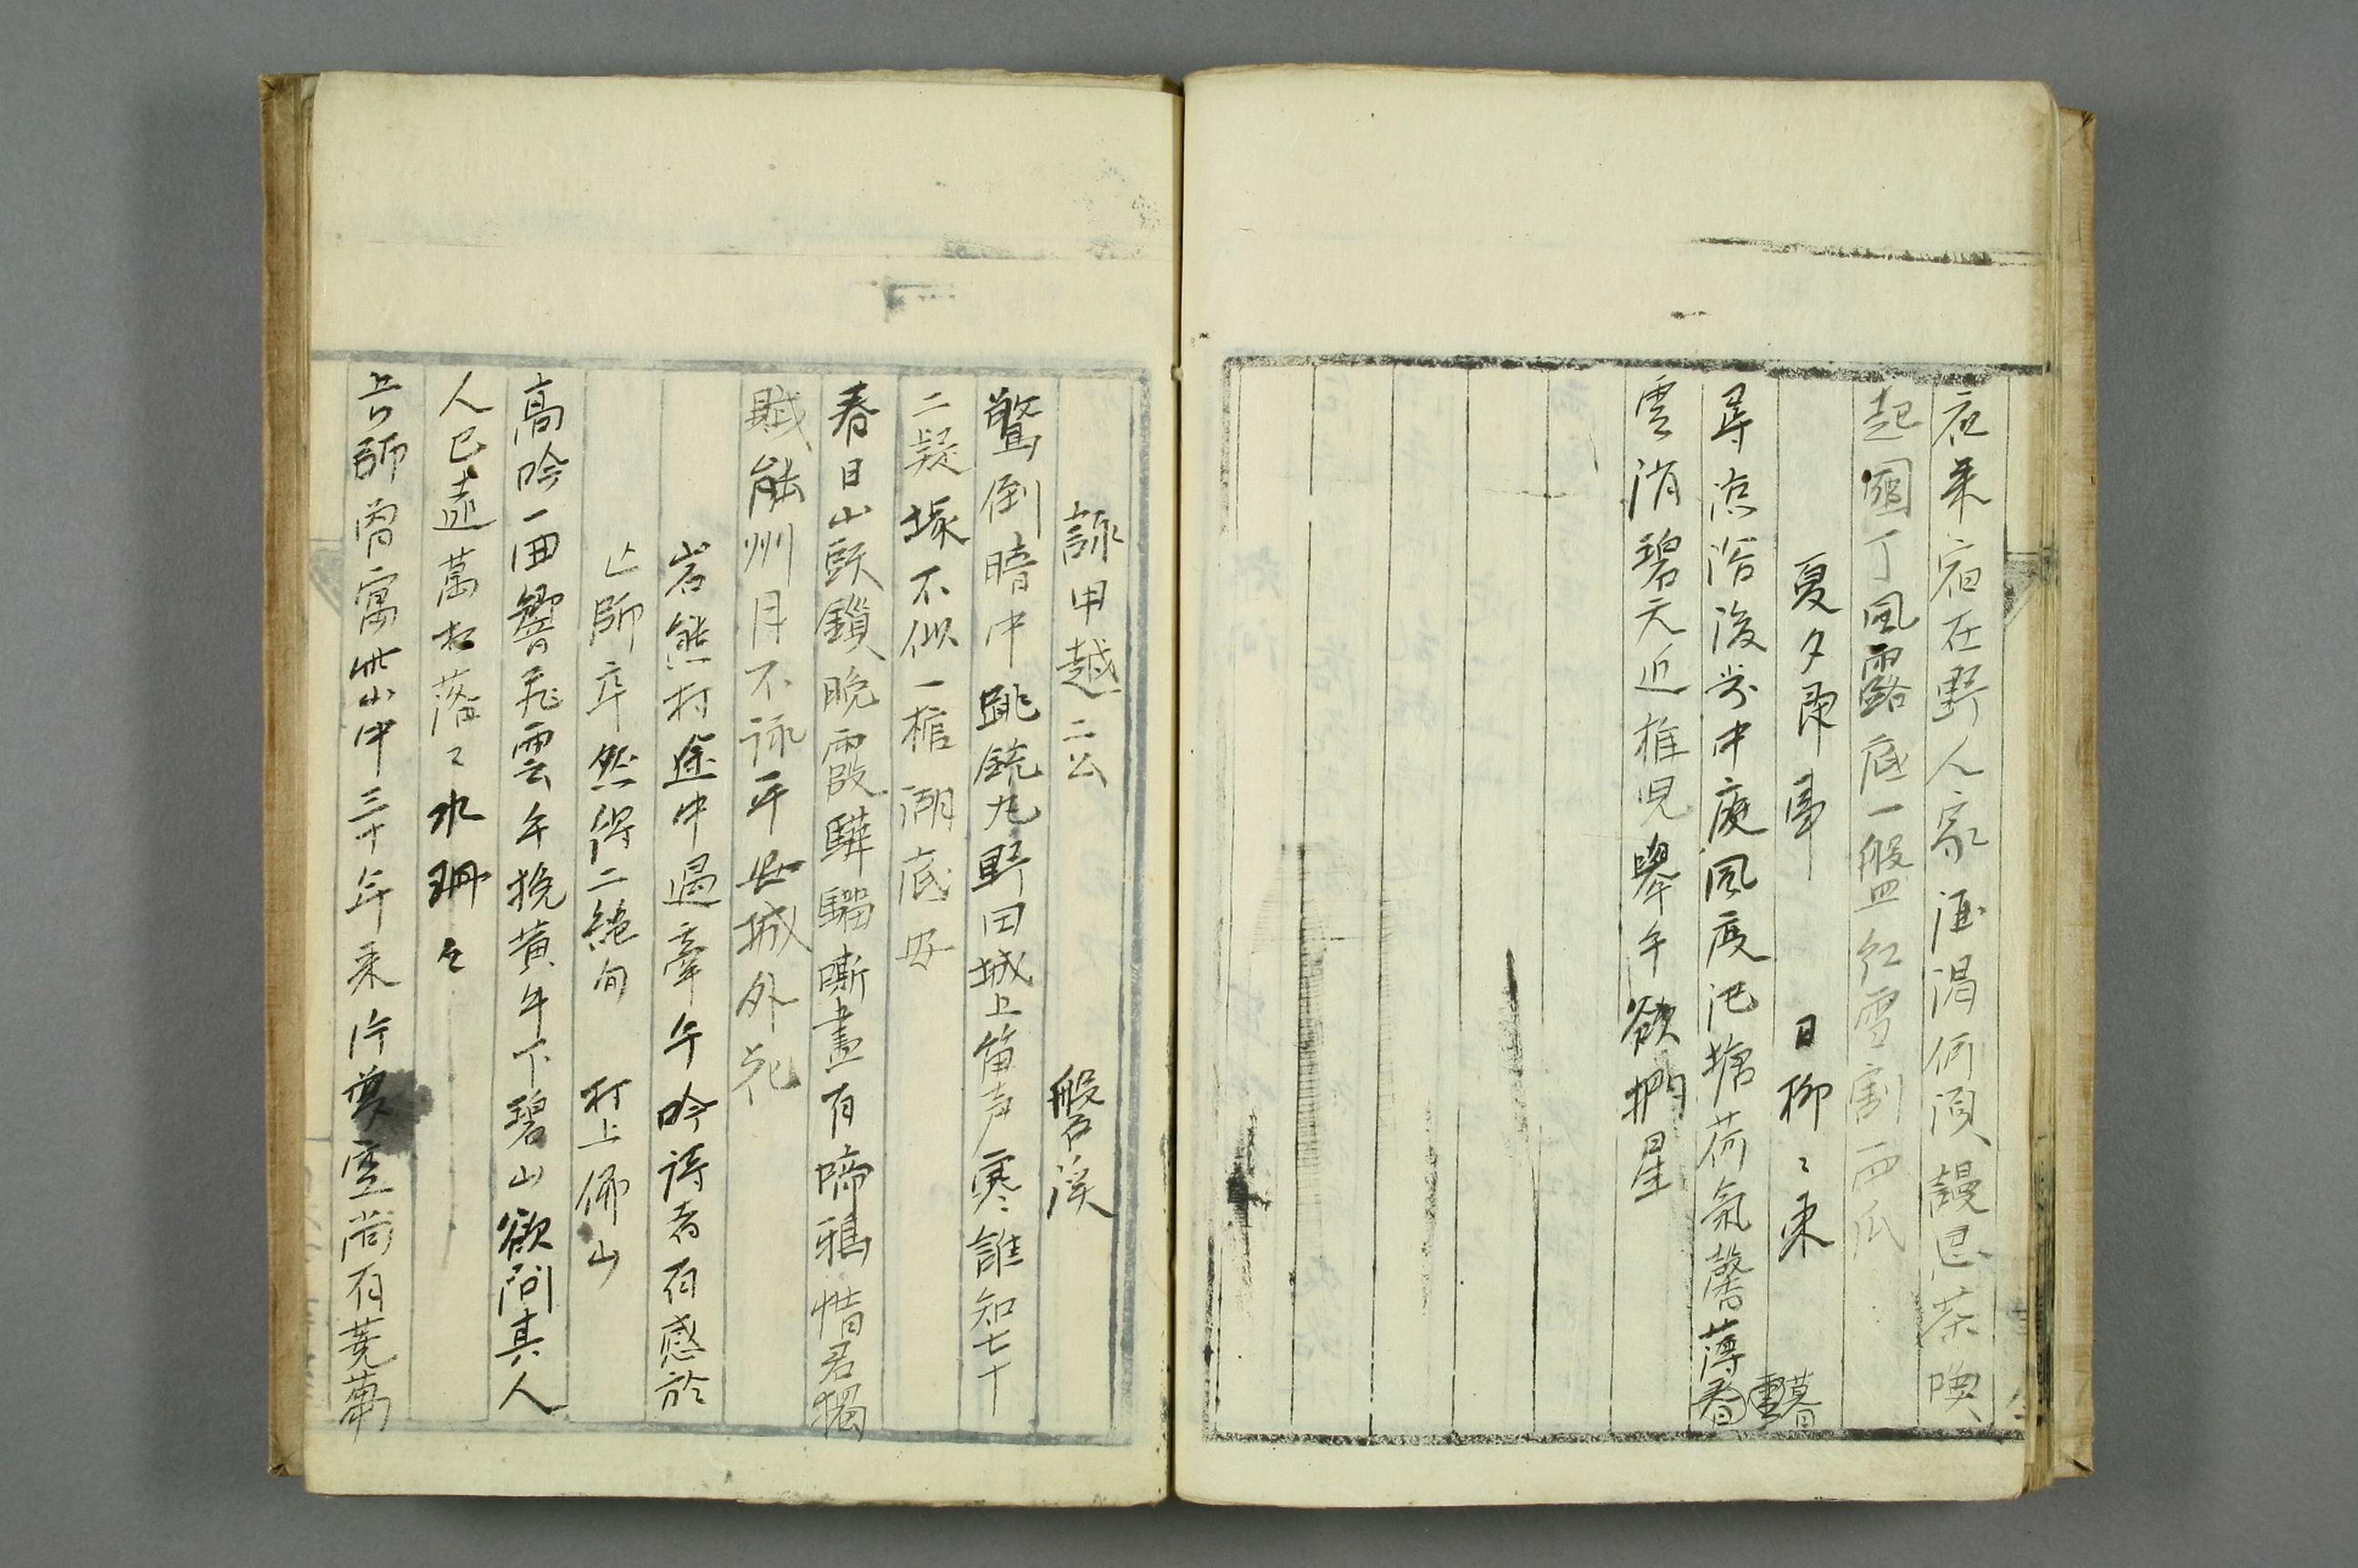 夜来宿在野人家酒渇何須謾思茶喚
起園丁風露底一盤紅雪割西瓜
夏夕即事　日柳々東
尋涼浴後歩中庭風度池塘荷気馨薄
暮雲
雲消碧天近推児擧手欲捫星
詠甲越二公　磐渓
驚倒暗中跳銃丸野田城上笛声寒誰知七十
二疑塚不似一棺湖底安
春日山頭鎖晩霞驊騮嘶盡有啼鴉惜君獨
賦能州月不詠平安城外花
岩熊村途中過牽牛吟詩者有感於
亡師卒然得二絶句　村上佛山
高吟一曲響飛雲手挽黄牛下碧山欲問其人
人已遠萬松落々水珊々
吾師曽寓此山中三十年来一夢空尚有蕘